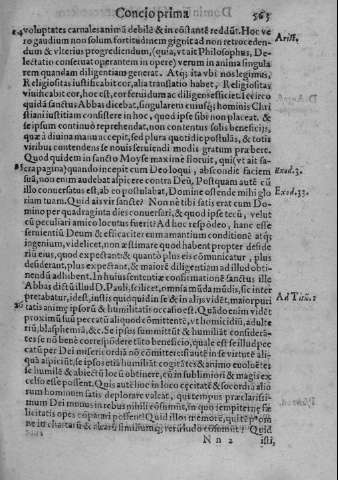 Concio prima 563
voluptates carnales animā debilē & in cōstantē reddūt. Hoc ve
ro gaudium non solum fortitudinem gignit ad non retrocedendum
& vlterius progrediendum, (quia, vt ait Philosophus, De- Arist.
lectatio conseruat operantem in opere) verum in anima singula
rem quandam diligentiam generat. Atq; ita vbi nos legimus,
Religiositas iustificabit cor, alia translatio habet, Religiositas
viuificabit cor, hoc est, cor feruidum ac diligens efficiet. Id circo
quidā sanctus Abbas dicebat, singularem cuiusq; hominis Chri
stiani iustitiam consistere in hoc, quod ipse sibi non placeat, &
se ipsum continuò reprehendat, non contentus solis beneficijs,
quæ à diuina manu accepit, sed plura quotidie postulās, & totis
viribus contendens se nouis seruiendi modis gratum præbere.
Quod quidem in sancto Moyse maximè floruit, qui (vt ait sa-
cra pagina) quando incepit cum Deo loqui, abscondit faciem Exod.3.
suā, non enim audebat aspicere contra Deū, Postquam autē cū
illo conuersatus est, ab eo postulabat, Domine ostende mihi glo Exod.33.
riam tuam. Quid ais vir sancte? Non nè tibi satis erat cum Do-
mino per quadraginta dies conuersari, & quod ipse tecū, velut
cū peculiari amico locutus fuerit? Ad hoc respōdeo, hanc esse
seruientiū Deum & efficaciter eum amantium conditionē atq;
ingenium, videlicet, non æstimare quod habent propter deside
riū eius, quod expectant: & quantò plus eis cōmunicatur, plus
desiderant, plus expectant, & maiorē diligentiam ad illud obti-
nendū adhibent. In huius sententiæ confirmationē sanctus ille
Abbas dictū illud D. Pauli, scilicet, omnia mūda mūdis, sic inter Ad Titū.1
pretabatur, idest, iustis quidquid in se & in alijs vidēt, maioris puri
tatis animę ipsorū & humilitatis occasio est. Quādo enim vidēt
proximū suū peccatū aliquod cōmittētē, vt homicidiū, adulte
riū, blasphemiā, &c. Se ipsos summittūt & humiliāt considerā-
tes se nō benè correspōdere tāto beneficio, quale est se illud pec
catū per Dei misericordiā nō cōmittere: si autē in se virtutē ali-
quā aspiciūt, se ipsos etiā humiliāt
se humilē & abiectū locū obtinere, cū in sublimiori & magis ex
celso esse possent. Quis autē hoc in loco cęcitatē & socordiā alio
rum hominum satis deplorare valeat, qui tempus præclarissi-
mum Dei munus in rebus nihili cōsumūt, in quo sempiternę fæ
licitatis opes cōparari possent? Quid illos memorē, qui tēpus
in chartarū & alearū, similiumq; rerū ludo cōsumūt? Quid
N n 2 isti,